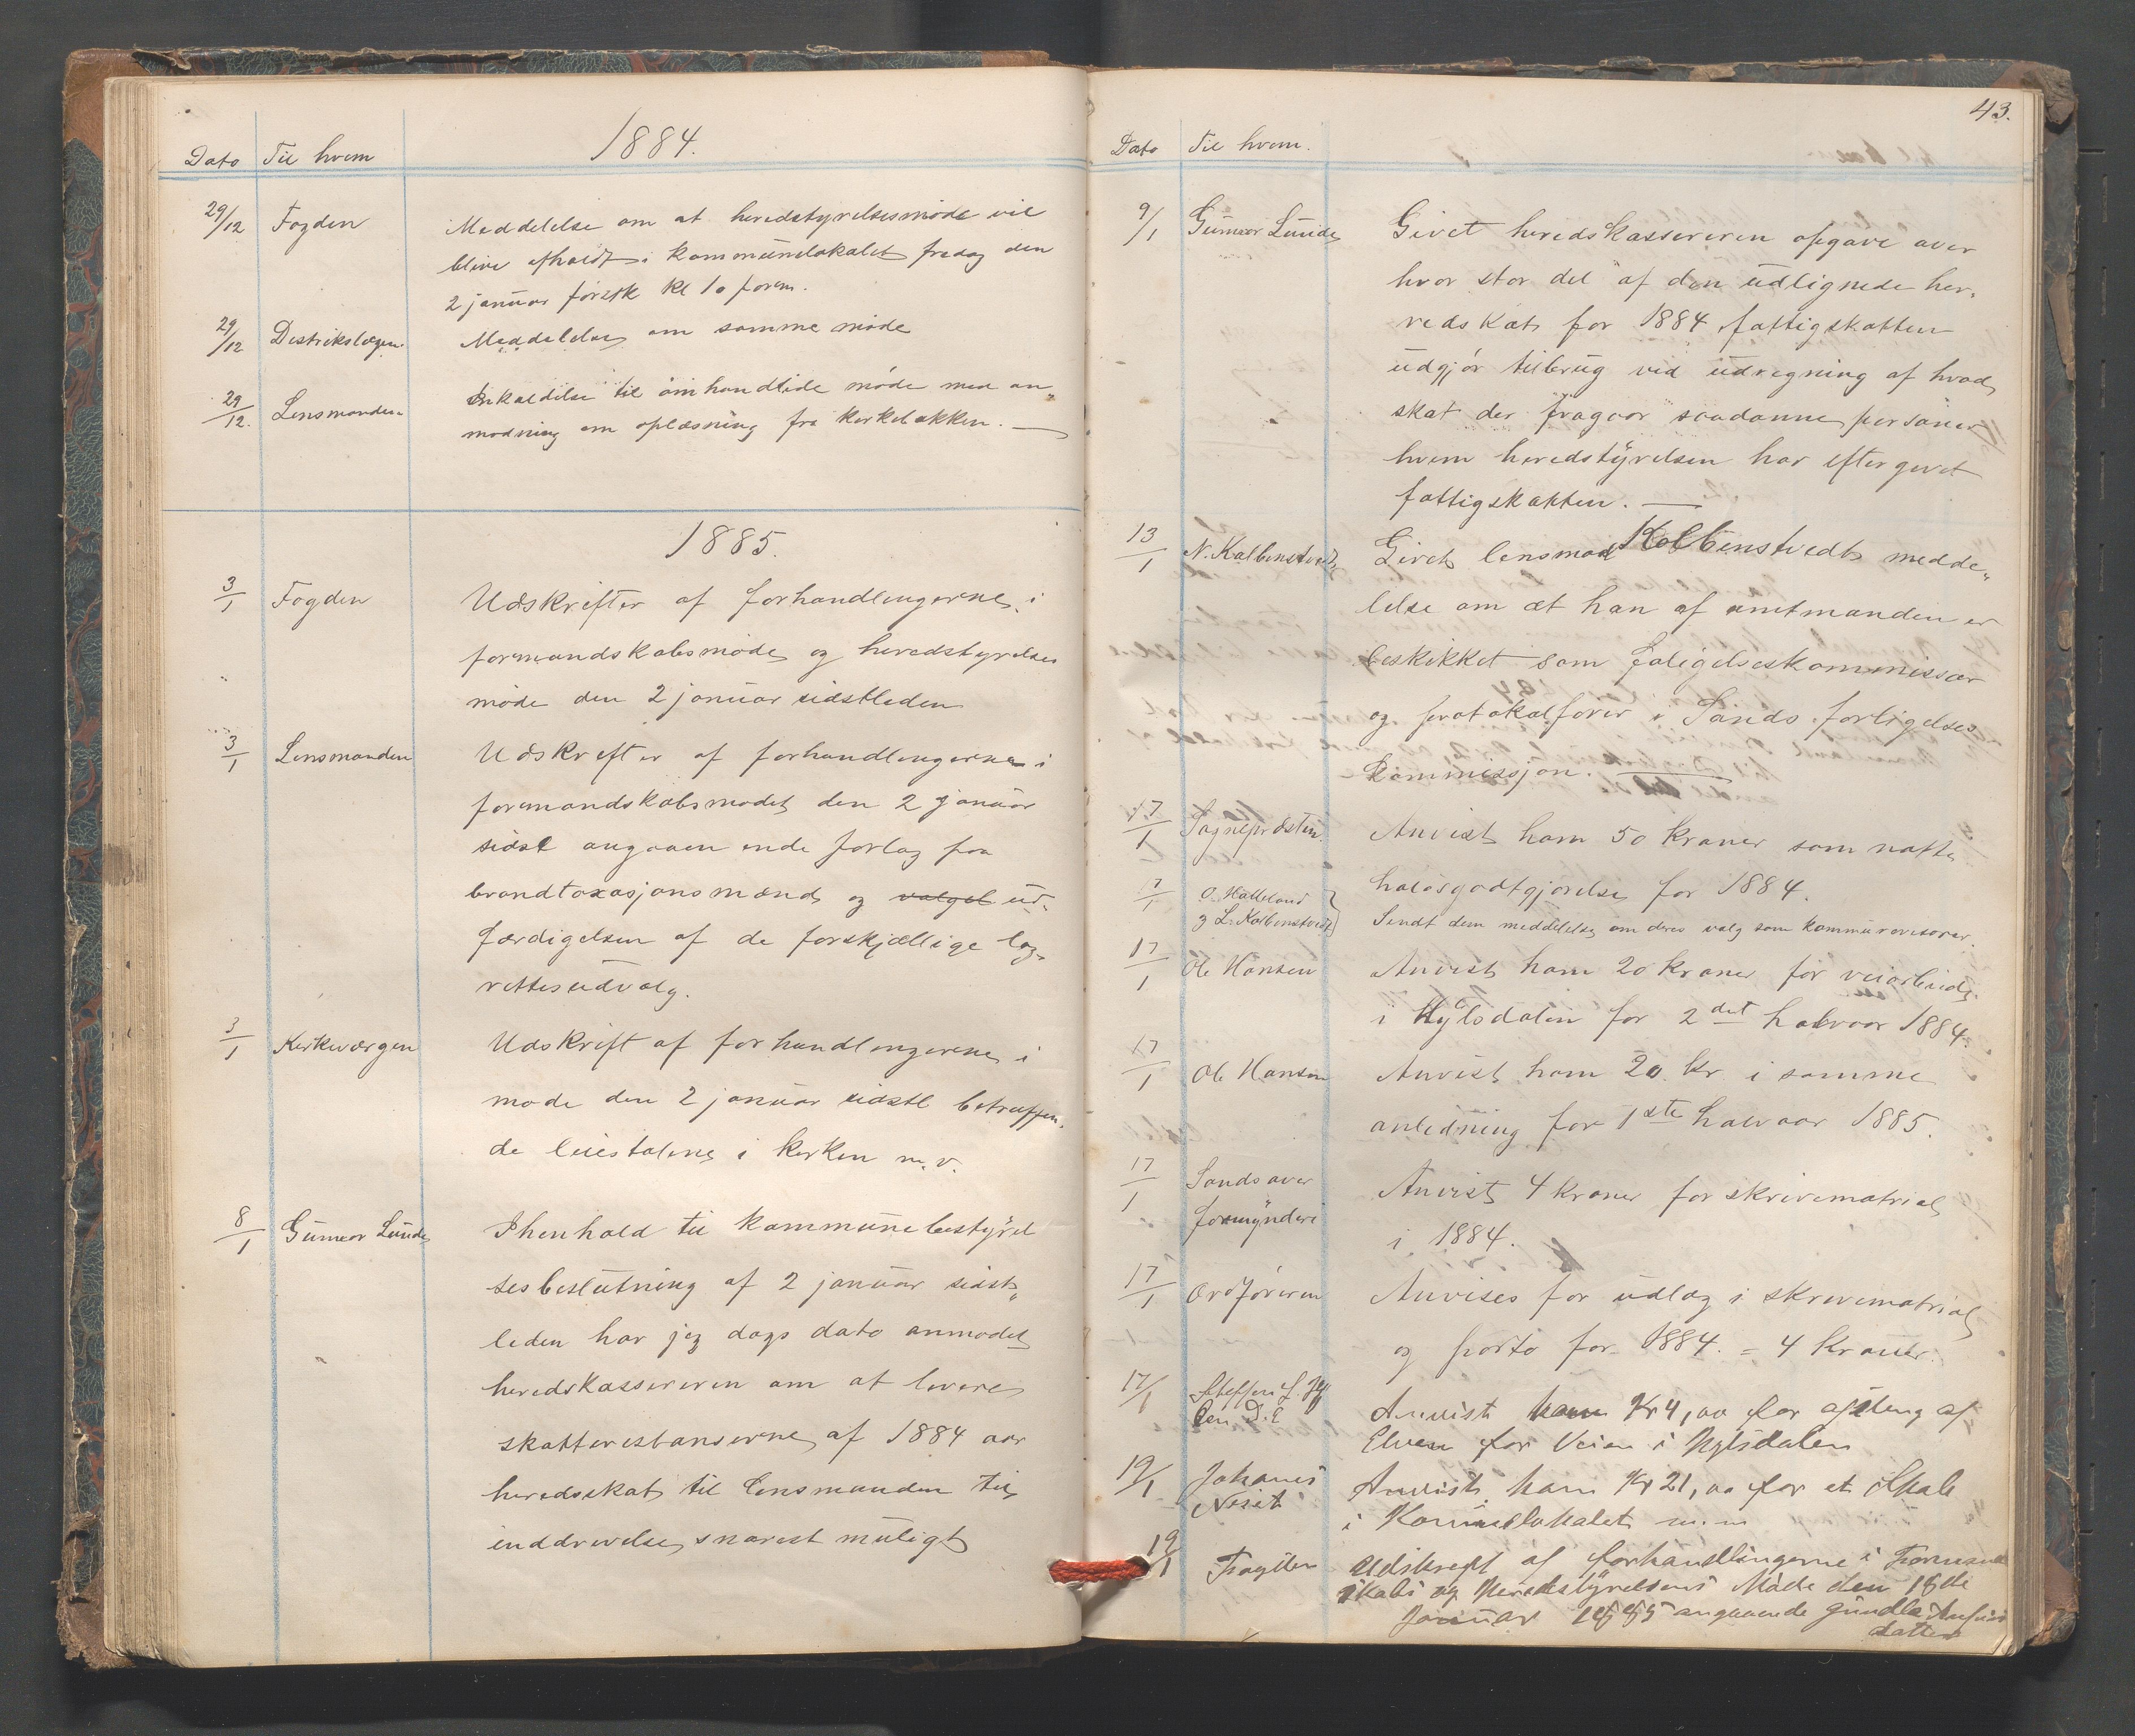 1884.
Dato Til hvem
29/12 Fogden Meddelelse om at heredstyrelsesmøde vil
blive afholdt i kommunelokalet fredag den
2 januar förstk kl 10 form.
29/12 Destrikslægen Meddelelse om samme møde
29/12. Lensmanden Inkaldelse til omhandlede møde med an„
modning om oplæsning fra kerkebakken. —
1885.
3/1 Fogden Udskrifter af forhandlingerne i
formandskabsmøde og heredstyrelses
møde den 2 januar sidstleden
3/1 Lensmanden Udskrefter af forhandlingerne i
formandskabsmødet den 2 januar
sidstl angaaende forlag paa
brandtaxasjonsmænd og valget ud„
færdigelsen af de forskjællige lag„
rettesudvalg.
3/1 Kerkeværgen Udskrift af forhandlingerne i
møde den 2 januar sidstl betræffen„
de leiestolene i kerken m.v.
8/1 Gunnar Lunde I henhold til kommunebestyrel
sesbeslutning af 2 januar sidst„
leden har jeg dags dato anmodet
heredskassereren om at levere
skatterestanserne af 1884 aar
heredsskat til lensmanden til
inddrevelse snarest muligt
43.
Dato Til hvem.
9/1 Gunnar Lunde Givet heredskassereren opgave over
hvor stor del af den udlignede her„
redskat for 1884 fattigskatten
udgjør tilbrug ved udregning af hvad
skat der fragaar saadanne personer
hvem heredstyrelsen har eftergivet
fattigskatten. —
13/1 N. Kalbenstvedt Givet lensmad Kolbenstvedt medde„
lelse om at han af amtmanden er
beskikket som foligelseskommissær
og protokolfører i Sands forligelses
kommissjon. —
17/1 Sognepræsten Anvist ham 50 kroner som natte
holdsgodtgjørelse for 1884.
17/1 O. Halleland
og L. Kolbenstvedt Sendt dem meddelelse om deres valg som kommunrevisorer.
17/1 Ole Hansen Anvist ham 20 kroner for veiarbeide
i Hylsdalen for 2det halvaar 1884.
17/1 Ole Hansen Anvist ham 20 kr i samme
anledning for 1ste halvaar 1885.
17/1 Sands over
formynderi Anvist 4 kroner for skrivematrial
i 1884.
17/1 Ordføreren Anvises for udlæg i skrivematrial
og porto for 1884. = 4 kroner.
17/1 Steffen L. Hy
len D. E Anvist ham Kr 4,00 for af
Elven for Veien i Hylsdalen
19/1 Johanes
Neset Anvist ham Kr 21,00 for et Skab
i Komunelokalet m.m
19/1 Fragden Udskreft af forhandlingerne i Formand
skabs og Heredstyrelsens Møde den 16de
Januar 1885 angaaende Gundla
datter